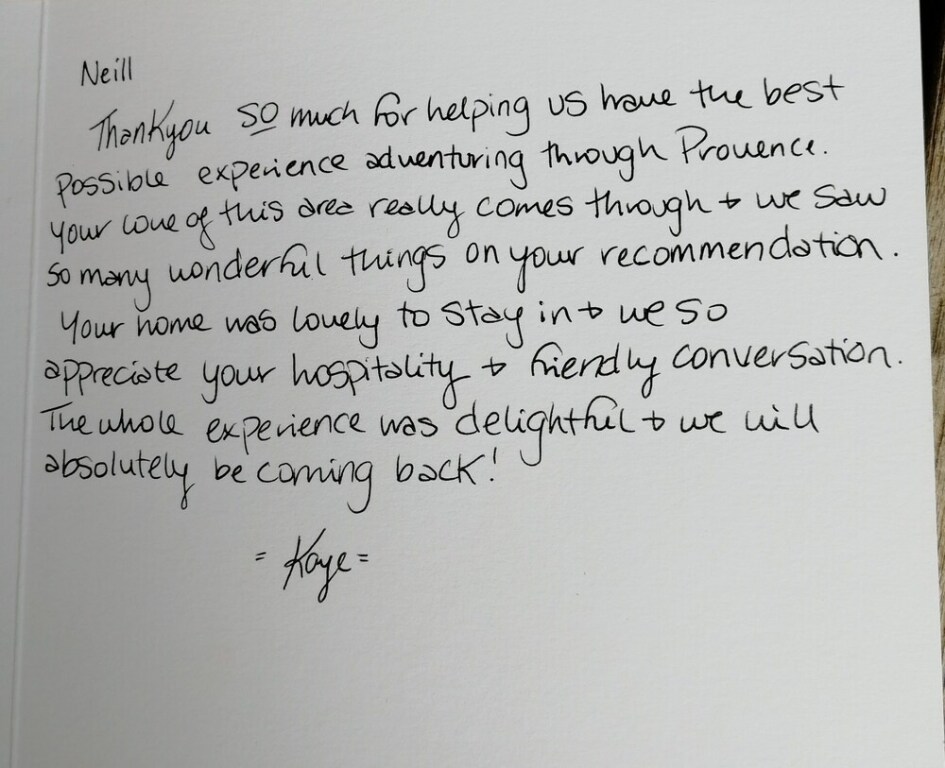 Neill
Thankyou so much for helping us have the best
possible experience adventuring through Provence.
Your love of this area really comes through + we saw
so many wonderful things on your recommendation.
Your home was lovely to stay in + we so
appreciate your hospitality + friendly conversation.
The whole experience was delightful + we will
absolutely be coming back!
= Kaye =